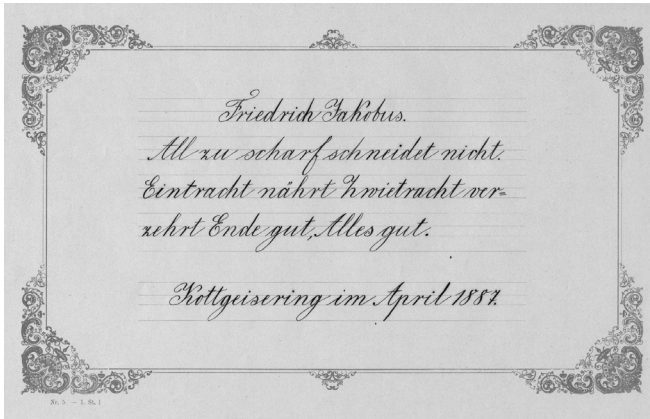 Friedrich Jakobus.
All zu scharf schneidet nicht.
Eintracht nährt Zwietracht ver=
zehrt Ende gut, Alles gut.
Kottgeisering im April 1887.
Nr. 5. — 1. St. 1